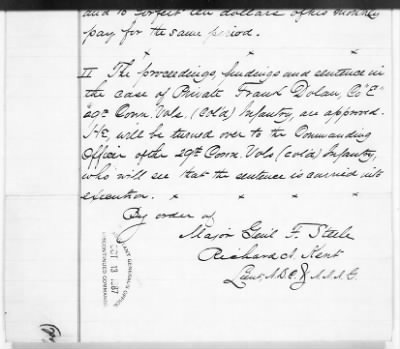 and to forfeit ten dollars of his monthly
pay for the same period.
× × ×
II The proceedings, findings and sentence in
the case of Private Frank Dolan, Co "E"
29th Conn. Vols. (Col'd) Infantry, are approved.
He, will be turned over to the Commanding
Officer of the 29th Conn. Vols (col'd) Infantry,
who will see that the sentence is carried into
execution. × × × ×
By order of
Major Genl F. Steele
Richard Kent
Lieut, A.D.C. & A.A.A.G.
GENERAL'S OFFICE
OCT 13 1887